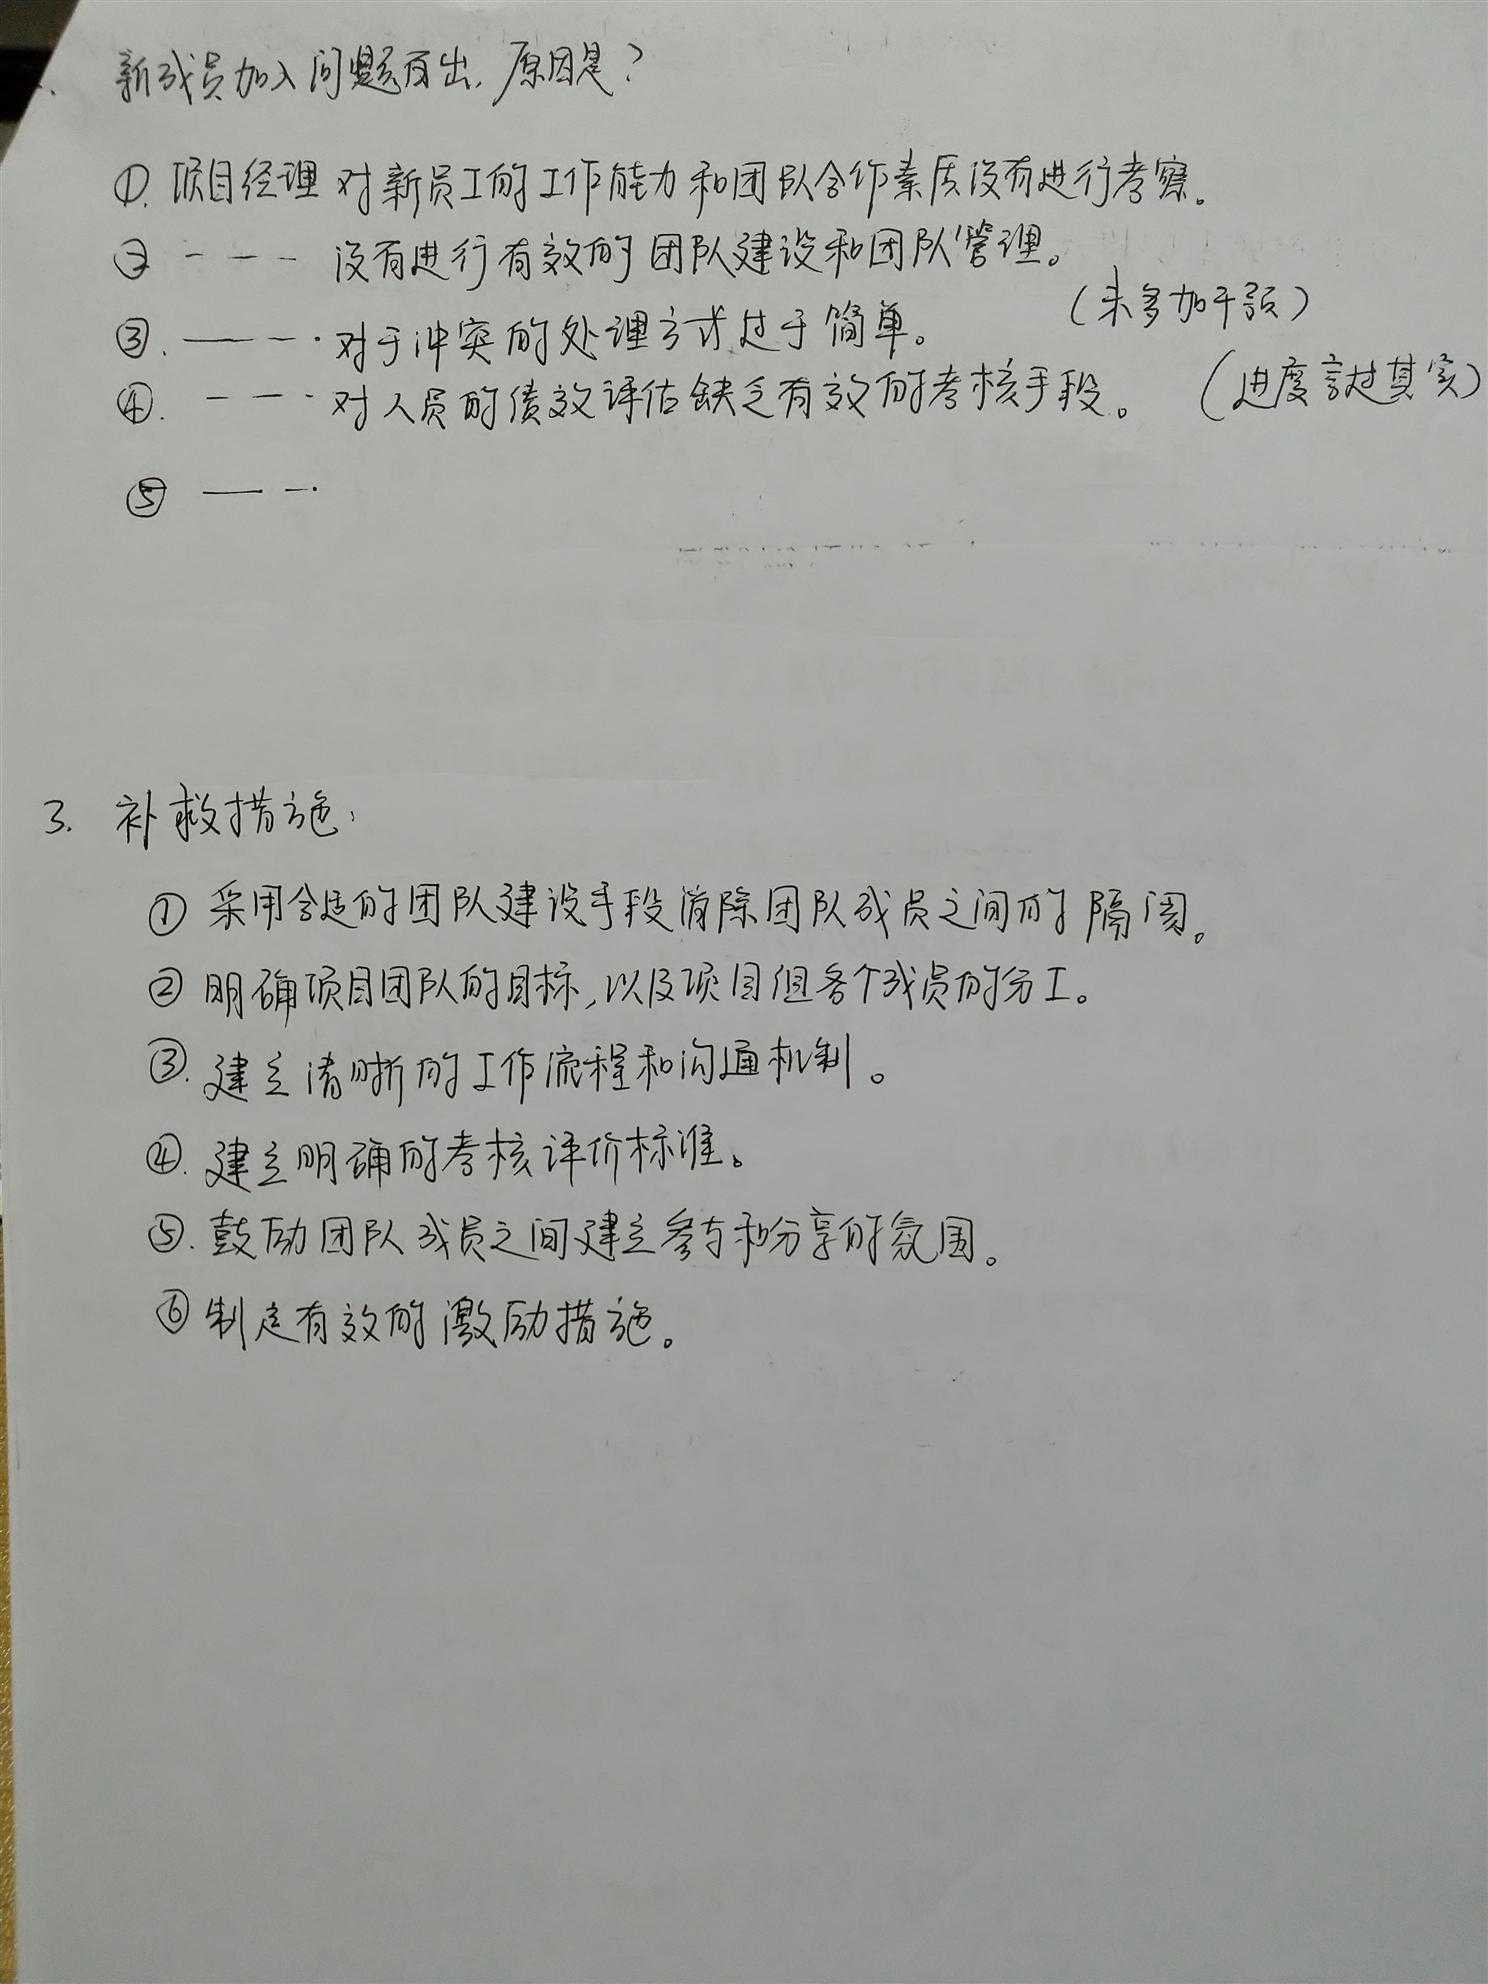 新成员加入问题百出，原因是？
①. 项目经理对新员工的工作能力和团队合作素质没有进行考察。
② - - - 没有进行有效的团队建设和团队管理。
（未多加干预）
③. — - · 对于冲突的处理方式过于简单。
④. - - · 对人员的绩效评估缺乏有效的考核手段。（进度言过其实）
⑤ — - ·
3. 补救措施：
① 采用合适的团队建设手段消除团队成员之间的隔阂。
② 明确项目团队的目标，以及项目组各个成员的分工。
③. 建立清晰的工作流程和沟通机制。
④. 建立明确的考核评价标准。
⑤. 鼓励团队成员之间建立参与和分享的氛围。
⑥ 制定有效的激励措施。